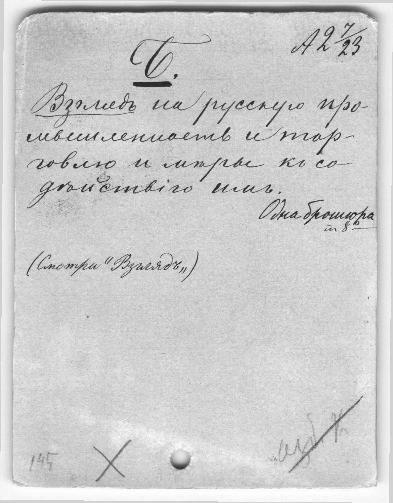 A 2 7/23
Б.
Взглядъ на русскую про-
мышленность и тор-
говлю и мѣры къ со-
дѣйствію имъ.
Одна брошюра
in 8°
(Смотри "Взглядъ„)
145